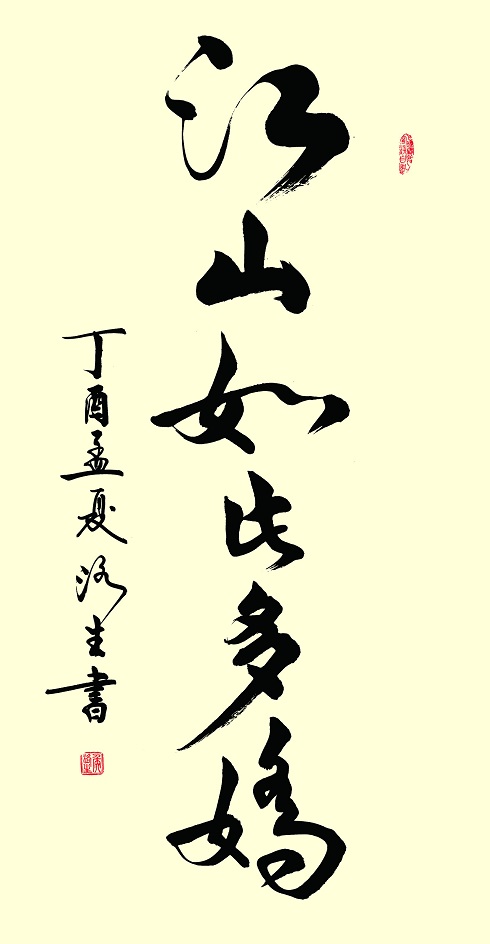 江山如此多嬌
丁酉孟夏洛生書